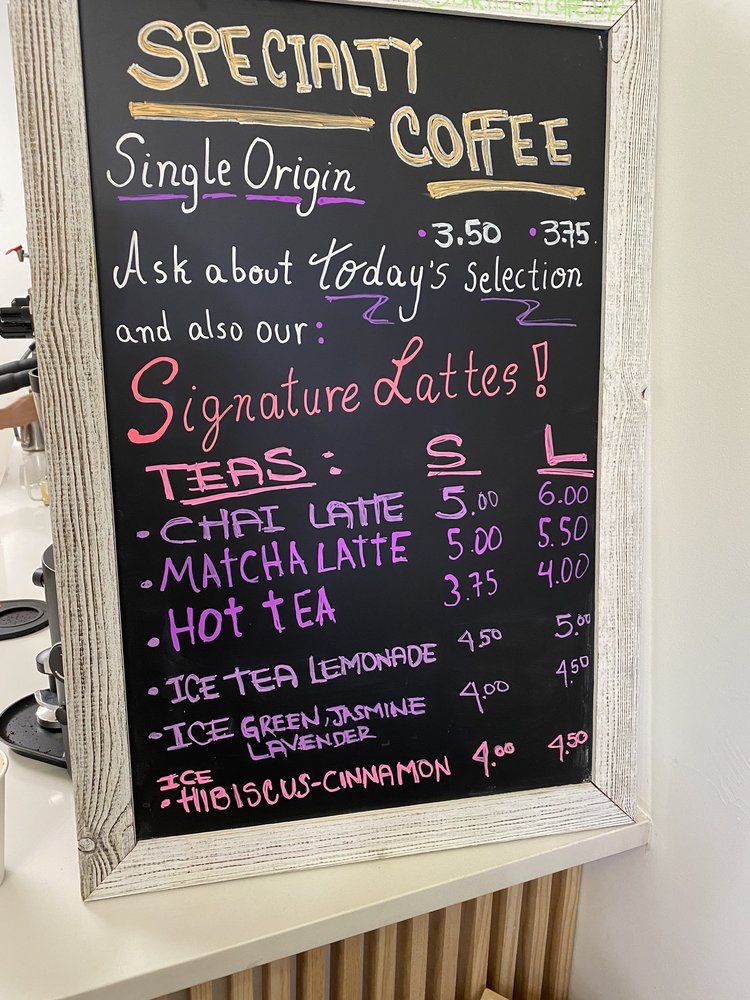 SPECIALTY
COFFEE
Single Origin
• 3.50 • 3.75.
Ask about today's selection
and also our:
Signature Lattes!
TEAS: S L
• CHAI LATTE 5.00 6.00
• MATCHA LATTE 5.00 5.50
• HOT TEA 3.75 4.00
• ICE TEA LEMONADE 4.50 5.00
• ICE GREEN, JASMINE 4.00 4.50
LAVENDER
ICE
• HIBISCUS-CINNAMON 4.00 4.50